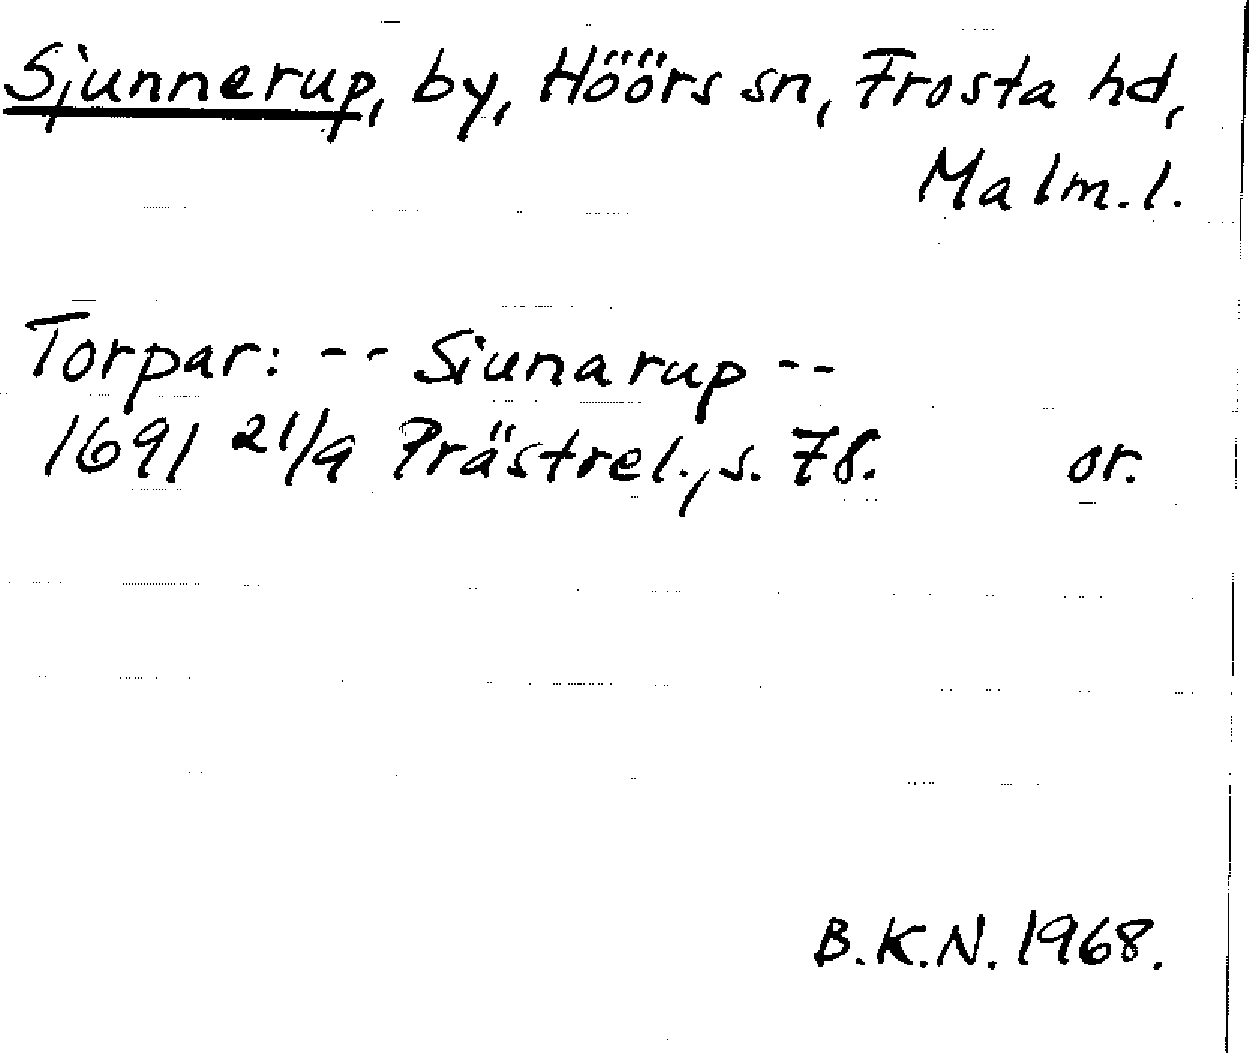 Sjunnerup, by, Höörs sn, Frosta hd,
Malm. l.
Torpar: -- Siunarup --
1691 21/9 Prästrel., s. 78. or.
B.K.N. 1968.